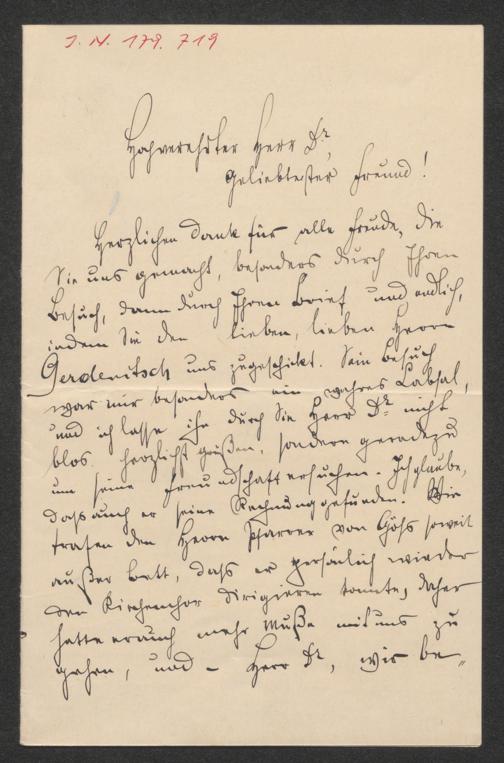 J. N. 179.719
Hochverehrter Herr Dr,
Geliebtester Freund!
Herzlichen Dank für alle Freude, die
Sie uns gemacht, besonders durch Ihren
Besuch, dann durch Ihren Brief und endlich,
indem Sie den lieben, lieben Herrn
Gerdenitsch uns zugeschickt. Sein Besuch
war mir besonders ein wahres Labsal,
und ich lasse ihn durch Sie Herr Dr nicht
blos herzlichst grüßen, sondern geradezu
um seine Freundschaft ersuchen. Ich glaube,
dass auch er seine Rechnung gefunden. Wir
trafen den Herrn Pfarrer von Göss soweit
außer Bett, dass er persönlich wieder
den Kirchenchor dirigieren konnte, daher
hatte er auch mehr Muße mit uns zu
gehen, und – Herr Dr, wir be„